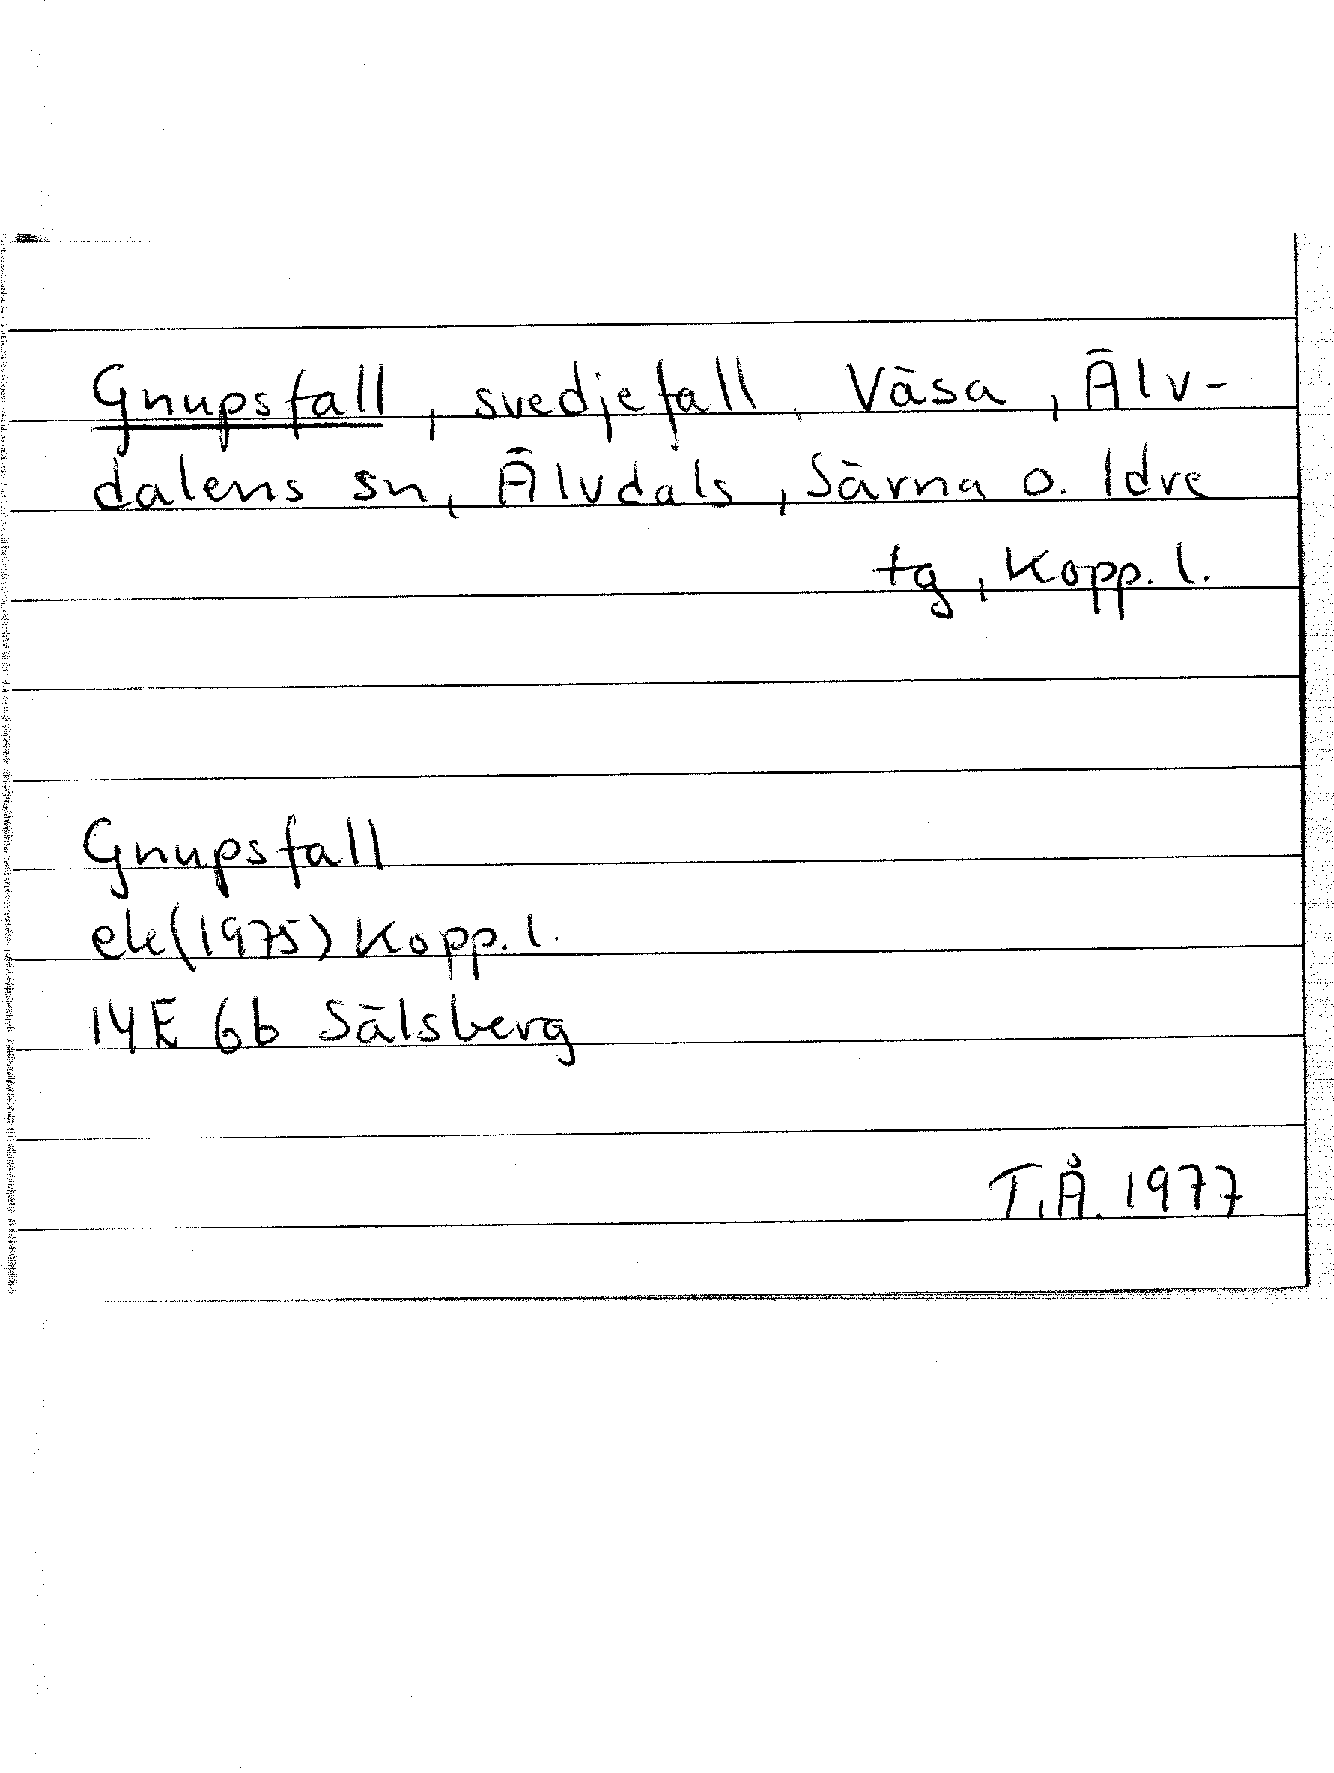 Gnupsfall, svedjefall, Väsa, Älv-
dalens sn, Älvdals, Särna o. Idre
tg, Kopp. l.
Gnupsfall
ek (1975) Kopp. l.
14E 6b Sälsberg
T.Å. 1977